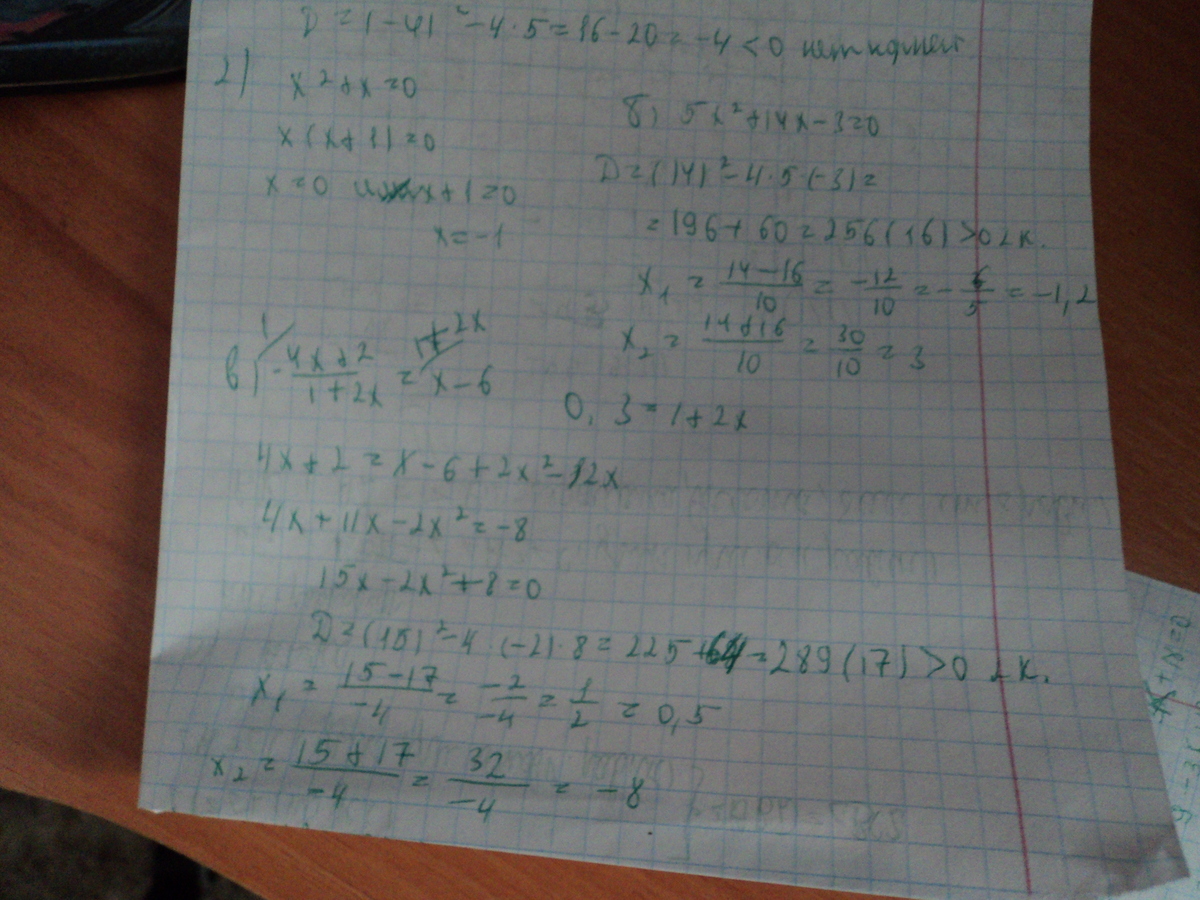 D = (-4)² - 4·5 = 16 - 20 = -4 < 0 нет корней
2) x² + x = 0
x(x+1) = 0
x = 0 x + 1 = 0
x = -1
б) 5x² + 14x - 3 = 0
D = (14)² - 4·5·(-3) =
= 196 + 60 = 256 (16) > 0 2к.
x₁ = \frac{14-16}{10} = \frac{-12}{10} = -\frac{6}{5} = -1,2
x₂ = \frac{14+16}{10} = \frac{30}{10} = 3
0, 3 = 1 + 2x
1/ 1+2x/
в) \frac{4x+2}{1+2x} = x - 6
4x + 2 = x - 6 + 2x² - 12x
4x + 11x - 2x² = -8
15x - 2x² + 8 = 0
D = (15)² - 4·(-2)·8 = 225 + 64 = 289 (17) > 0 2к.
x₁ = \frac{15-17}{-4} = \frac{-2}{-4} = \frac{1}{2} = 0,5
x₂ = \frac{15+17}{-4} = \frac{32}{-4} = -8